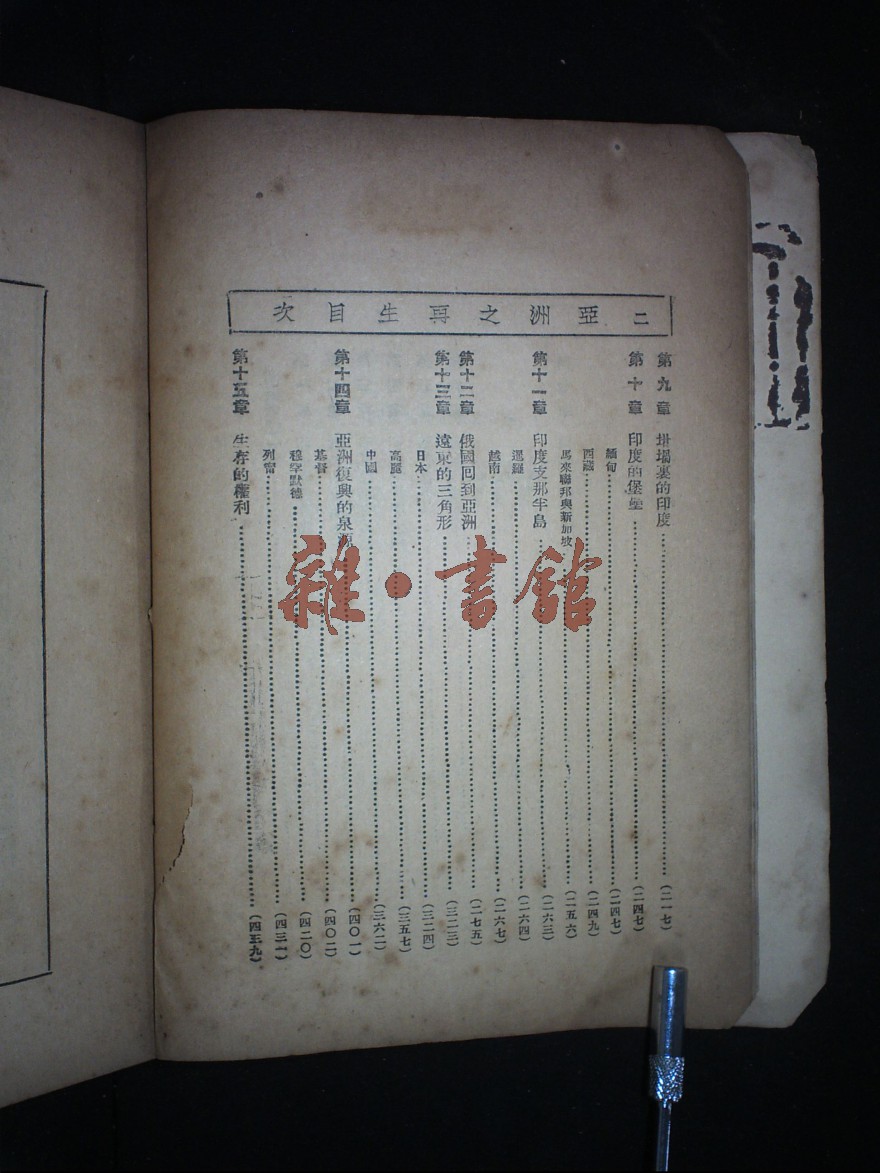 二 亞洲之再生目次
第九章 坩堝裏的印度……(二一七)
第十章 印度的堡壘……(二四七)
緬甸……(二四七)
西藏……(二四九)
馬來聯邦與新加坡……(二五六)
第十一章 印度支那半島……(二六三)
暹羅……(二六四)
越南……(二六七)
第十二章 俄國回到亞洲……(二七五)
第十三章 遠東的三角形……(三二三)
日本……(三二四)
高麗……(三五七)
中國……(三六二)
第十四章 亞洲復興的泉源……(四〇一)
基督……(四〇二)
穆罕默德……(四二〇)
列甯……(四三一)
第十五章 生存的權利……(四五九)
雜·書館